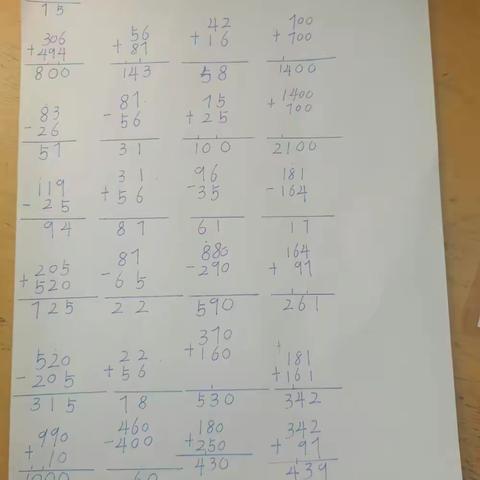 75
306 56 42 700
+494 +87 +16 +700
800 143 58 1400
83 87 75 1400
-26 -56 +25 +700
57 31 100 2100
119 31 96 181
-25 +56 -35 -164
94 87 61 17
205 87 880 164
+520 -65 -290 +97
725 22 590 261
520 22 370 181
-205 +56 +160 +161
315 78 530 342
990 460 180 342
+10 -400 +250 +97
1000 60 430 439